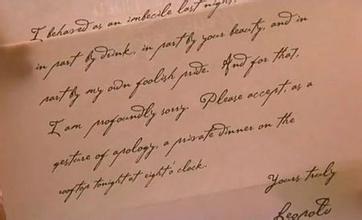 I behaved as an imbecile last night,
in part by drink, in part by your beauty, and in
part by my own foolish pride. And for that,
I am profoundly sorry. Please accept, as a
gesture of apology, a private dinner on the
rooftop tonight at eight's clock.
Yours truly
Leopold